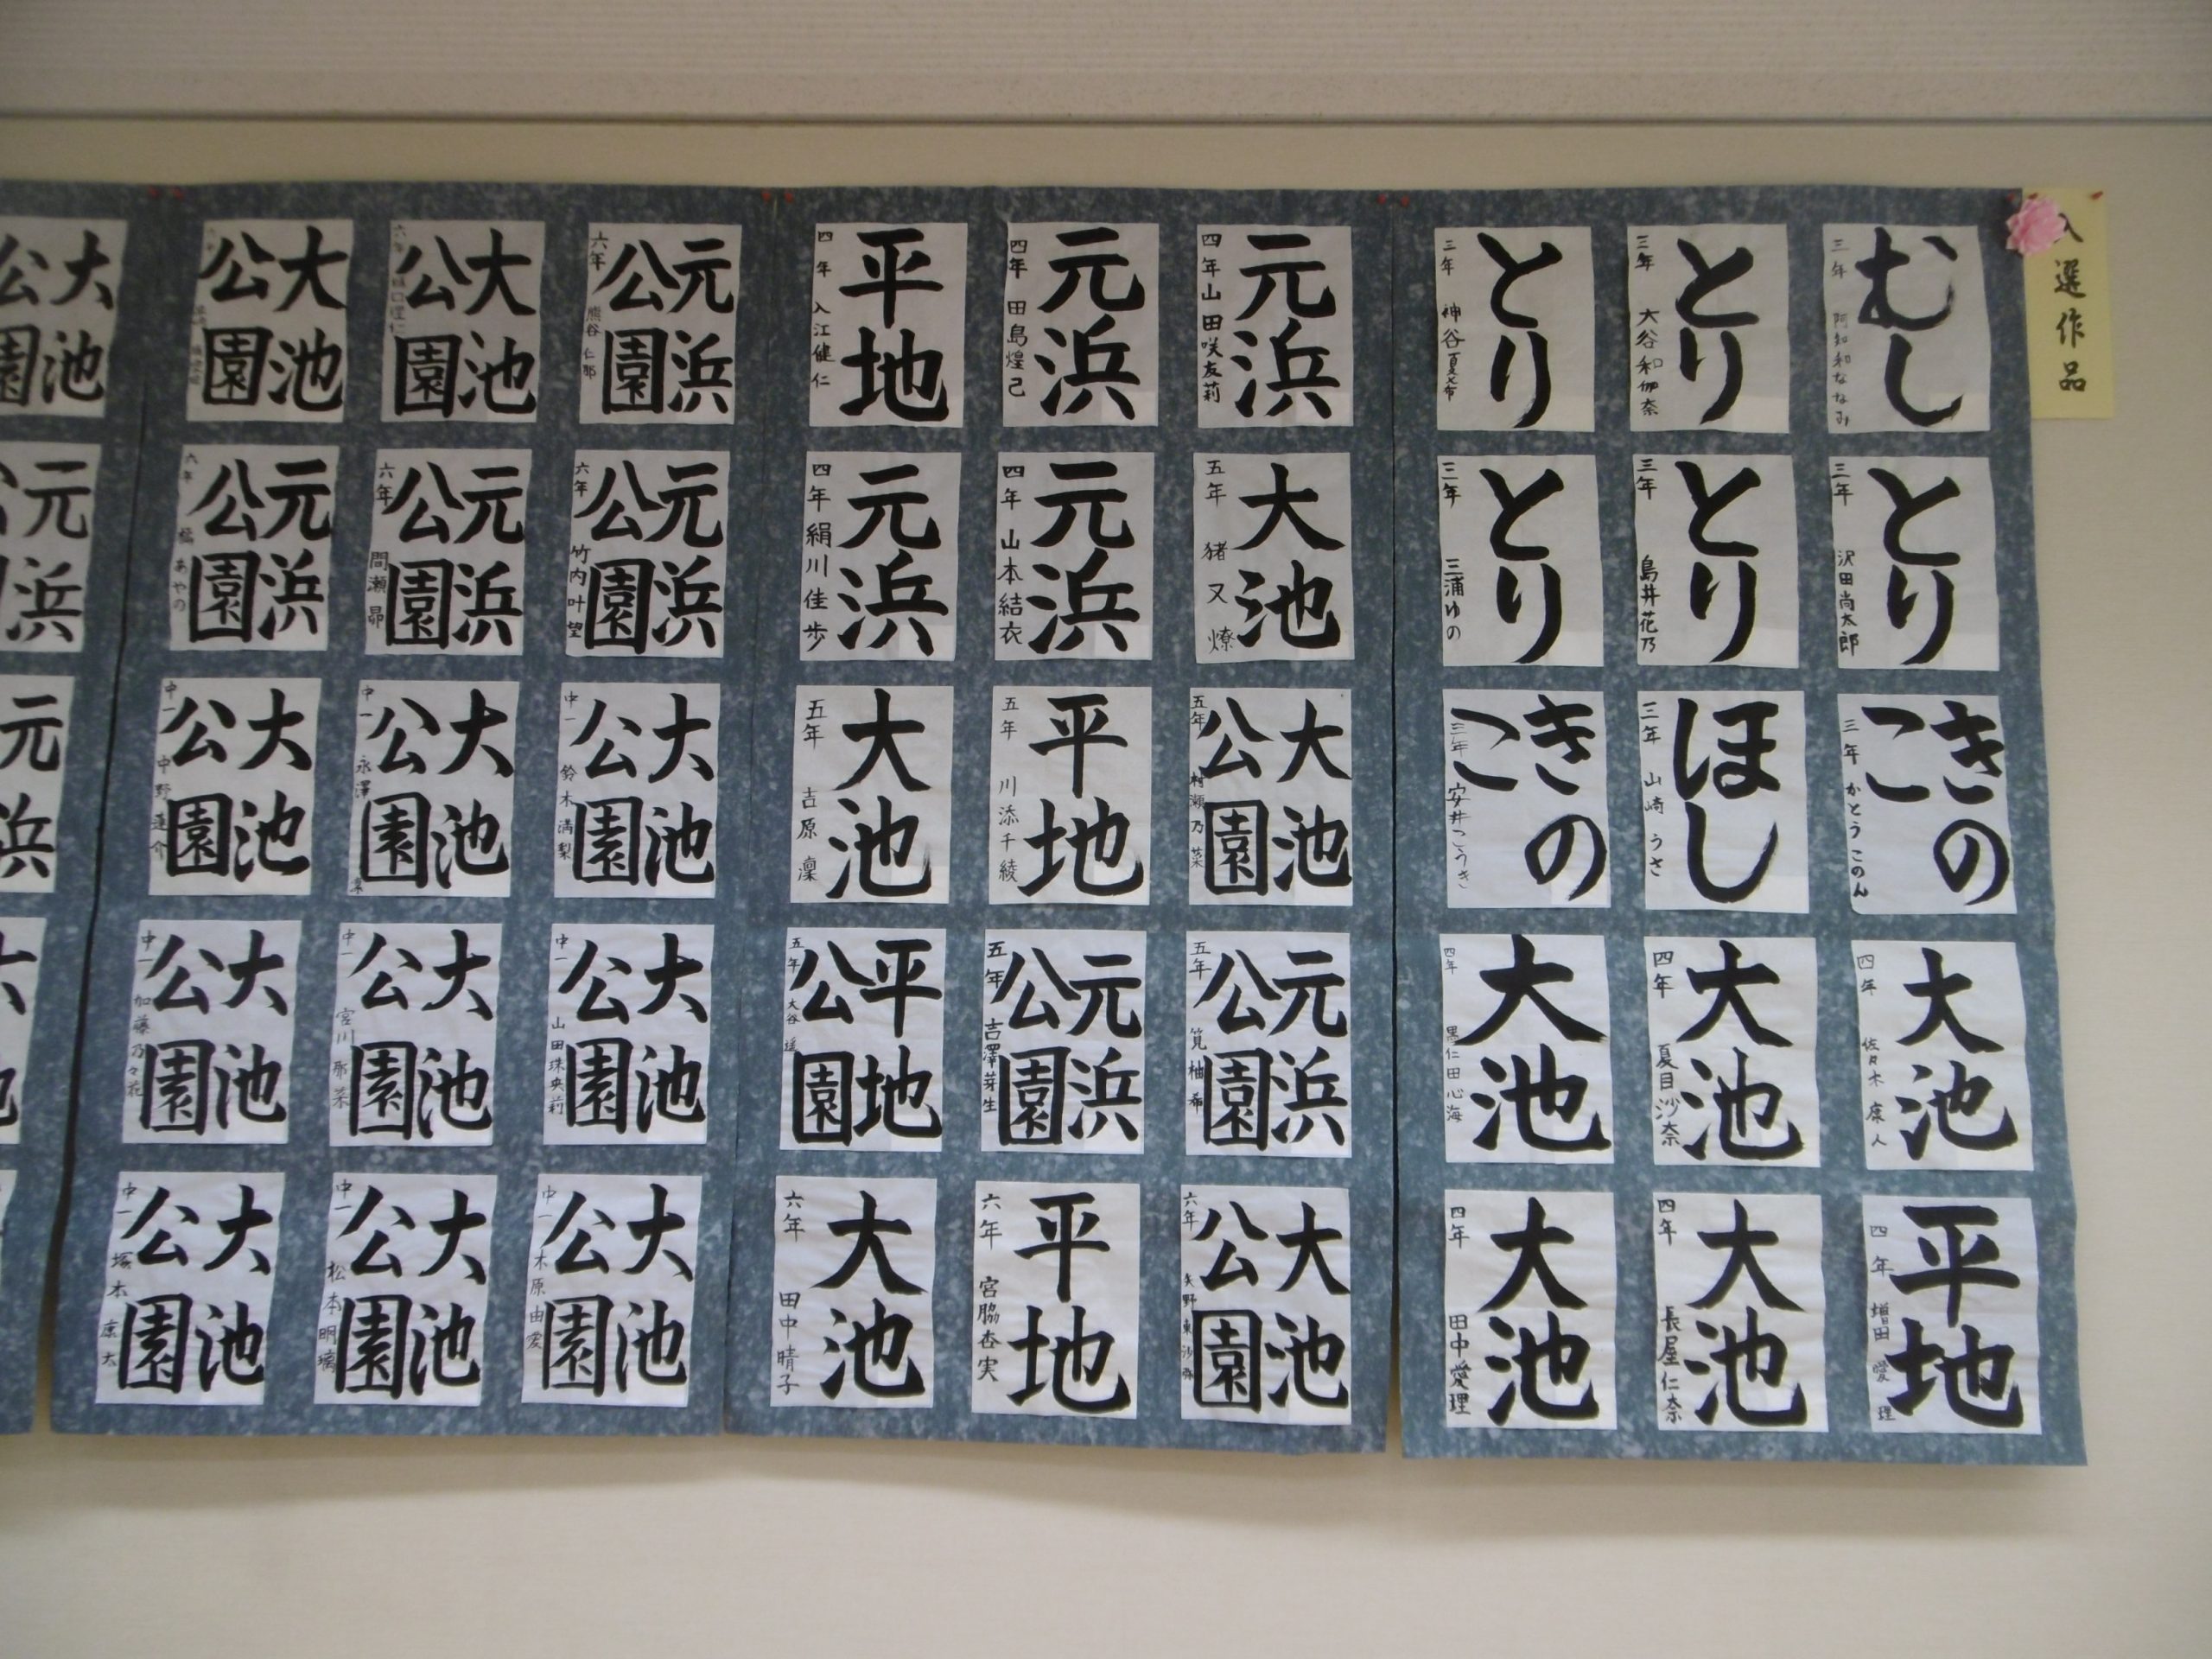 入選作品
むし
三年 阿知和ななみ
とり
三年 大谷和伽奈
とり
三年 神谷夏希
とり
三年 沢田尚太郎
とり
三年 島井花乃
とり
三年 三浦ゆの
きのこ
三年 かとうこのん
ほし
三年 山崎うさ
きのこ
三年 安井こうき
大池
四年 佐々木康人
大池
四年 夏目沙奈
大池
四年 黒仁田心海
平地
四年 増田愛理
大池
四年 長屋仁奈
大池
四年 田中愛理
元浜
四年 山田咲友莉
元浜
四年 田島煌己
平地
四年 入江健仁
大池
五年 猪又燎
元浜
四年 山本結衣
元浜
四年 絹川佳歩
大池公園
五年 村瀬乃菜
平地
五年 川添千綾
大池
五年 吉原凜
元浜公園
五年 筧柚希
元浜公園
五年 吉澤芽生
平地公園
五年 大谷遥
大池公園
六年 矢野
平地
六年 宮脇杏実
大池
六年 田中晴子
元浜公園
六年 熊谷仁郎
大池公園
六年
大池公園
元浜公園
六年 竹内叶望
元浜公園
六年 間瀬昴
元浜公園
六年 あやの
大池公園
中一 鈴木満梨
大池公園
中一 永澤凛
大池公園
中一 中野蓮介
大池公園
中一 山田珠央莉
大池公園
中一 宮川那菜
大池公園
中一 加藤乃々花
大池公園
中一 木原由愛
大池公園
中一 松本明璃
大池公園
中一 塚本康太
大池
公園
元浜
元浜